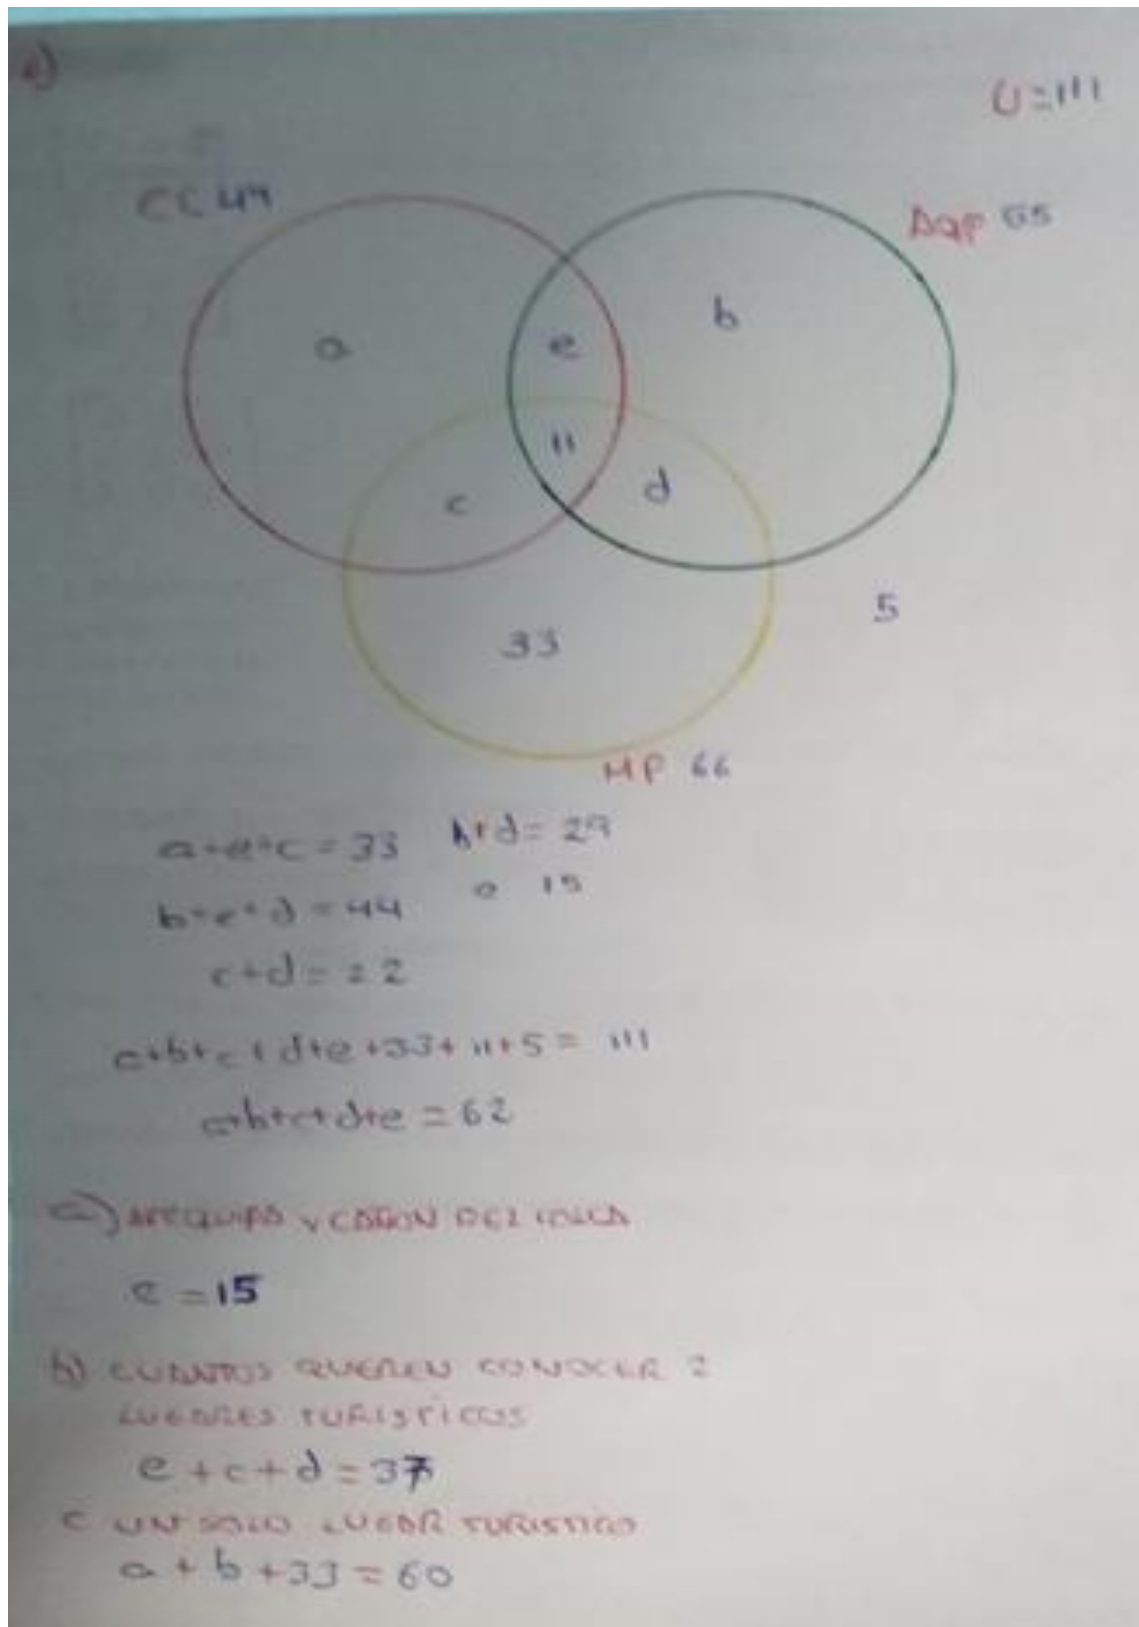 U=111
CC 44
AQP 55
a
e
b
11
c
d
33
5
MP 66
a+e+c=33 b+d=29
b+e+d=44 e 15
c+d=22
a+b+c+d+e+33+11+5=111
a+b+c+d+e=62
a) AREQUIPA Y CAÑON DEL COLCA
e=15
b) CUANTOS QUIEREN CONOCER 2
LUGARES TURISTICOS
e+c+d=37
c UN SOLO LUGAR TURISTICO
a+b+33=60